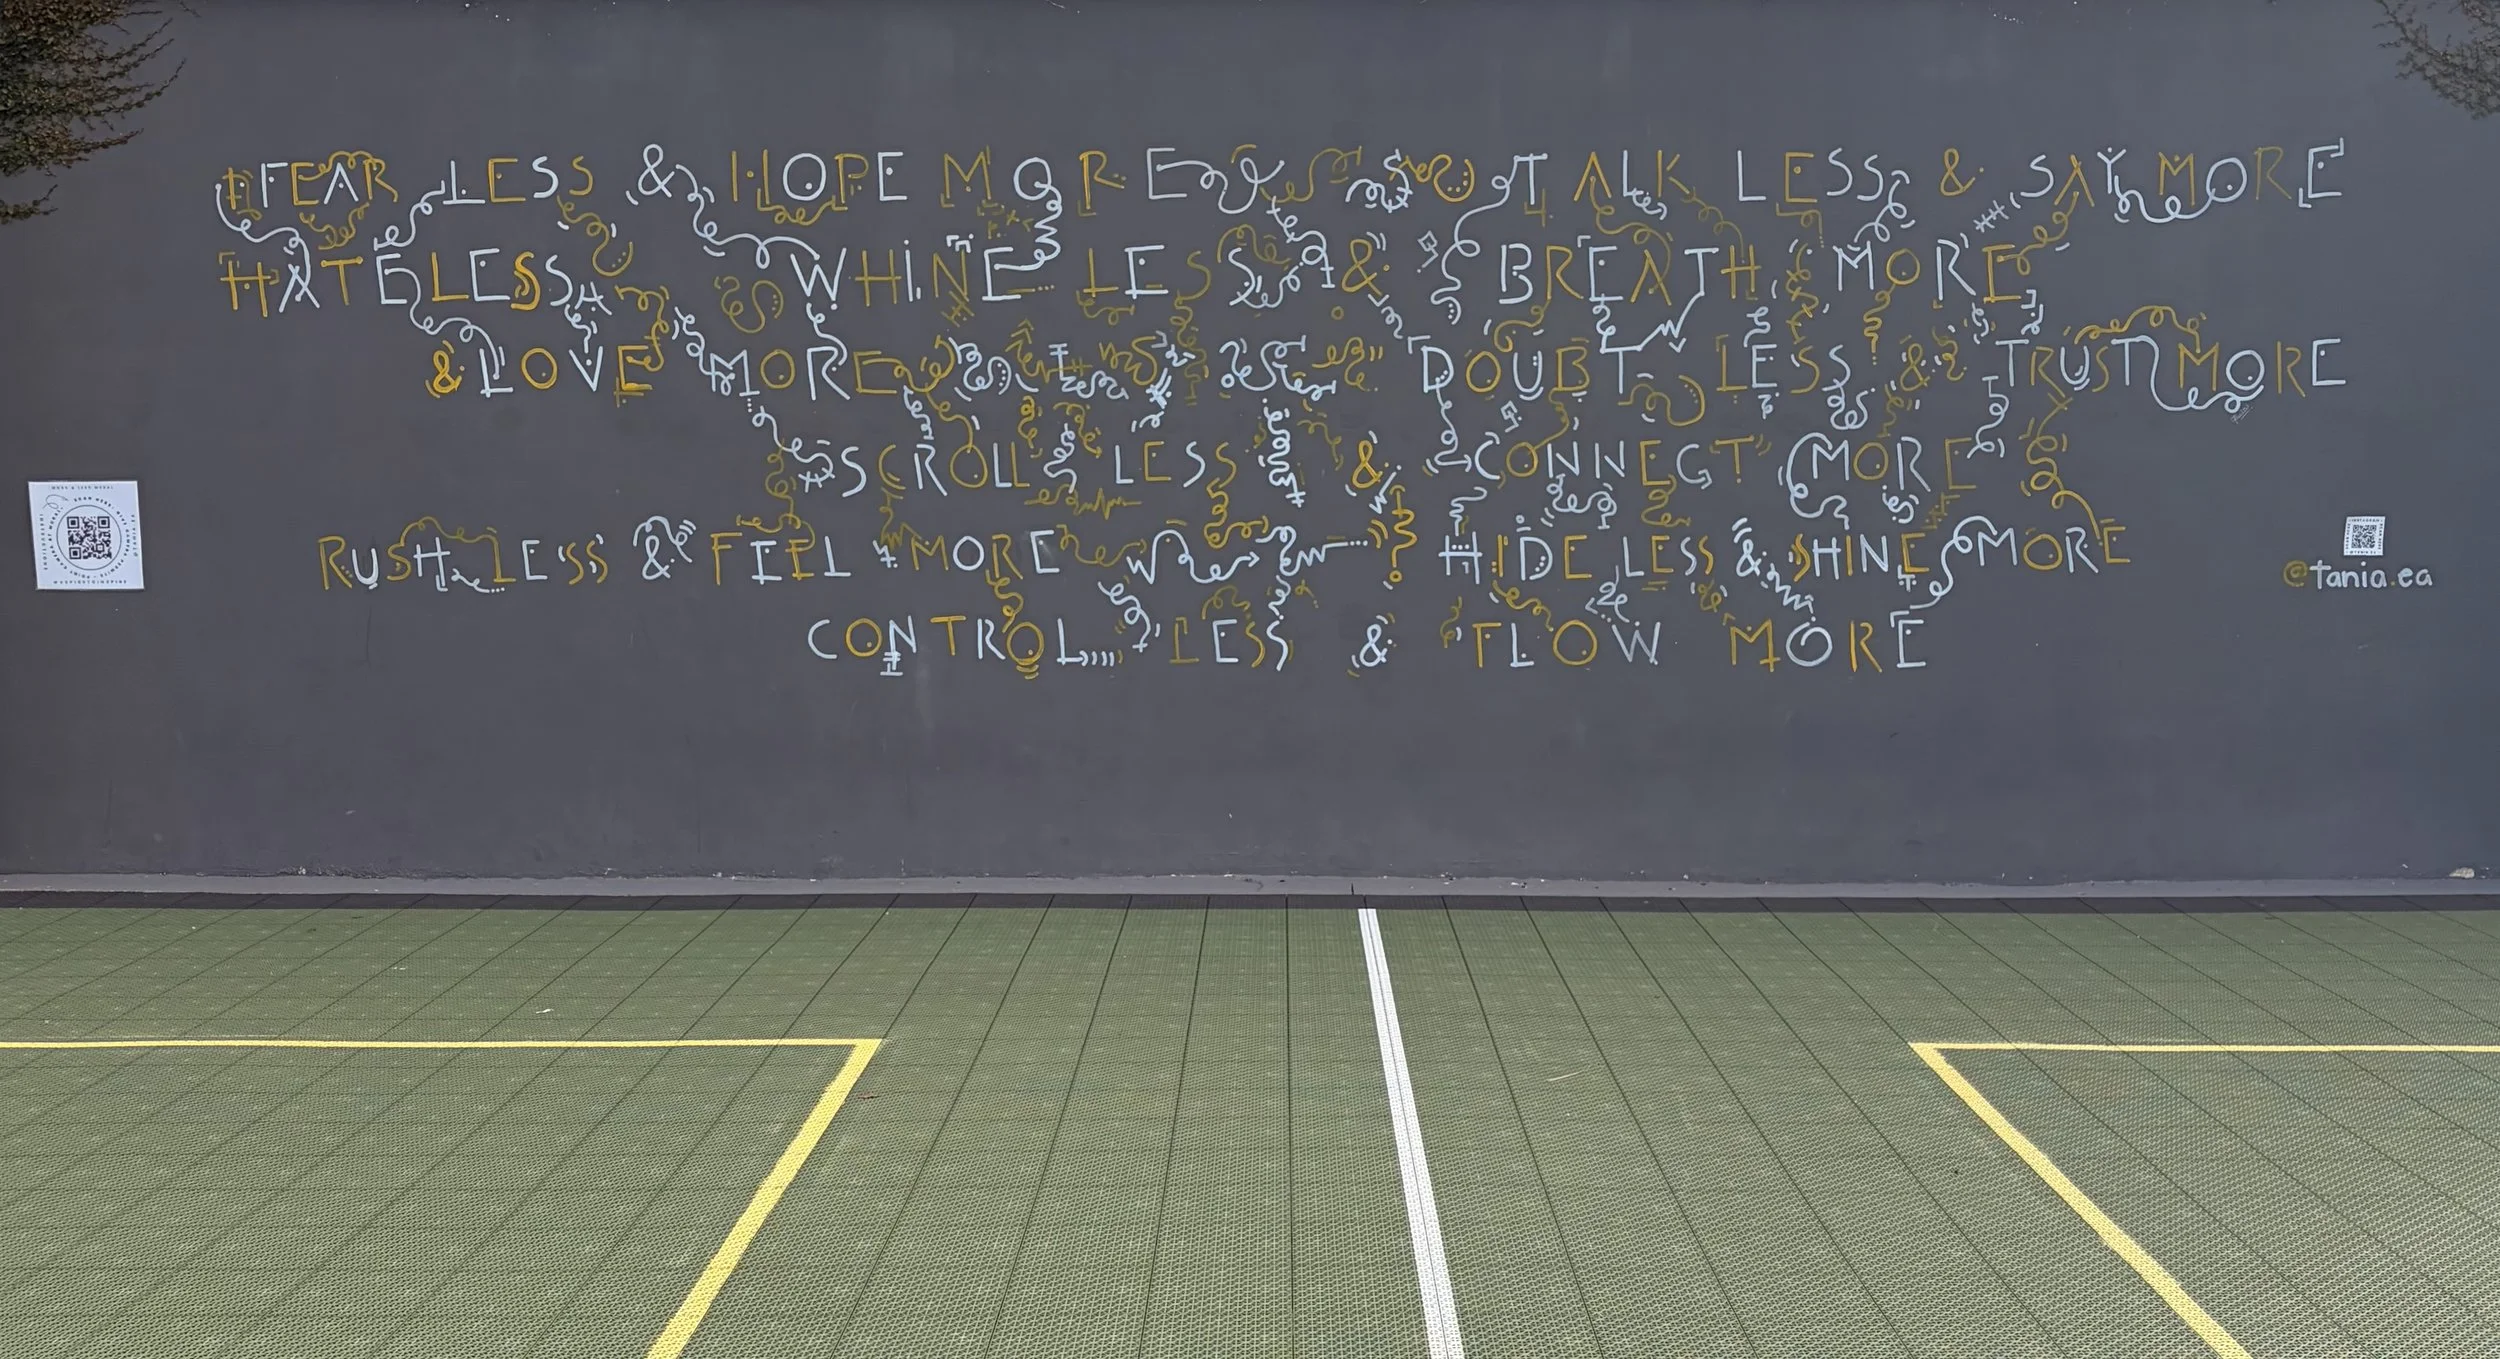 FEAR LESS & HOPE MORE TALK LESS & SAY MORE
HATE LESS WHINE LESS & BREATH MORE
& LOVE MORE DOUBT LESS & TRUST MORE
SCROLL LESS & CONNECT MORE
RUSH LESS & FEEL MORE HIDE LESS & SHINE MORE
CONTROL LESS & FLOW MORE
@tania.ea